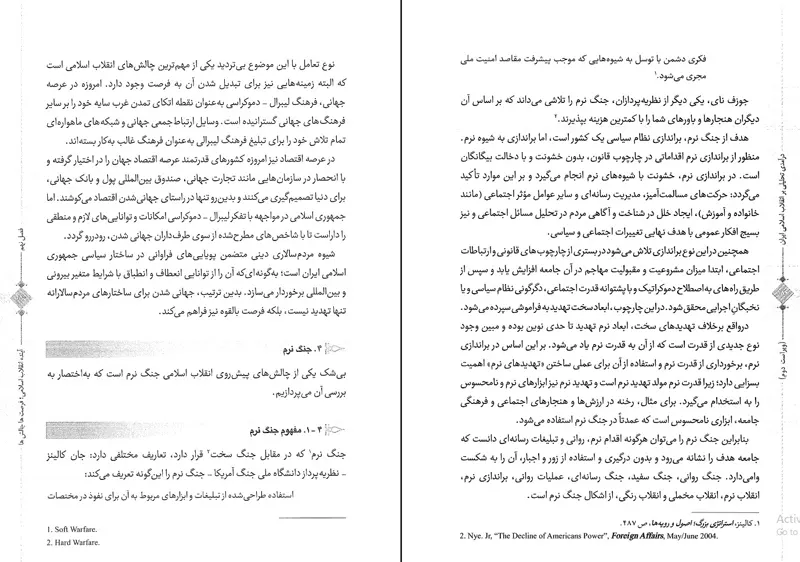 نوع تعامل با این موضوع بی‌تردید یکی از مهم‌ترین چالش‌های انقلاب اسلامی است
که البته زمینه‌هایی نیز برای تبدیل شدن آن به فرصت وجود دارد. امروزه در عرصه
جهانی، فرهنگ لیبرال - دموکراسی به‌عنوان نقطه اتکای تمدن غرب سایه خود را بر سایر
فرهنگ‌های جهانی گسترانیده است. وسایل ارتباط‌جمعی جهانی و شبکه‌های ماهواره‌ای
تمام تلاش خود را برای تبلیغ فرهنگ لیبرالی به‌عنوان فرهنگ غالب به‌کار بسته‌اند.
در عرصه اقتصاد نیز امروزه کشورهای قدرتمند عرصه اقتصاد جهان را در اختیار گرفته و
با انحصار در سازمان‌هایی مانند تجارت جهانی، صندوق بین‌المللی پول و بانک جهانی،
برای دنیا تصمیم‌گیری می‌کنند و بدین‌رو تنها در راستای جهانی شدن اقتصاد می‌کوشند. اما
جمهوری اسلامی در مواجهه با تفکر لیبرال - دموکراسی امکانات و توانایی‌های لازم و منطقی
را داراست تا با شاخص‌های مطرح‌شده از سوی طرف‌داران جهانی شدن، رودررو گردد.
شیوه مردم‌سالاری دینی متضمن پویایی‌های فراوانی در ساختار سیاسی جمهوری
اسلامی ایران است؛ به‌گونه‌ای‌که آن را از توانایی انعطاف و انطباق با شرایط متغیر بیرونی
و بین‌المللی برخوردار می‌سازد. بدین ترتیب، جهانی شدن برای ساختارهای مردم‌سالارانه
تنها تهدید نیست، بلکه فرصت بالقوه نیز فراهم می‌کند.
۴. جنگ نرم
بی‌شک یکی از چالش‌های پیش‌روی انقلاب اسلامی جنگ نرم است که به‌اختصار به
بررسی آن می‌پردازیم.
۴ - ۱. مفهوم جنگ نرم
جنگ نرم۱ که در مقابل جنگ سخت۲ قرار دارد، تعاریف مختلفی دارد: جان کالینز
- نظریه‌پرداز دانشگاه ملی جنگ آمریکا - جنگ نرم را این‌گونه تعریف می‌کند:
استفاده طراحی‌شده از تبلیغات و ابزارهای مربوط به آن برای نفوذ در مختصات
1. Soft Warfare.
2. Hard Warfare.
فصل نهم
آینده انقلاب اسلامی؛ فرصت‌ها، چالش‌ها
فکری دشمن با توسل به شیوه‌هایی که موجب پیشرفت مقاصد امنیت ملی
مجری می‌شود.۱
جوزف نای، یکی دیگر از نظریه‌پردازان، جنگ نرم را تلاشی می‌داند که بر اساس آن
دیگران هنجارها و باورهای شما را با کمترین هزینه بپذیرند.۲
هدف از جنگ نرم، براندازی نظام سیاسی یک کشور است، اما براندازی به شیوه نرم.
منظور از براندازی نرم اقداماتی در چارچوب قانون، بدون خشونت و با دخالت بیگانگان
است. در براندازی نرم، خشونت با شیوه‌های نرم انجام می‌گیرد و بر این موارد تأکید
می‌گردد: حرکت‌های مسالمت‌آمیز، مدیریت رسانه‌ای و سایر عوامل مؤثر اجتماعی (مانند
خانواده و آموزش)، ایجاد خلل در شناخت و آگاهی مردم در تحلیل مسائل اجتماعی و نیز
بسیج افکار عمومی با هدف نهایی تغییرات اجتماعی و سیاسی.
همچنین در این نوع براندازی تلاش می‌شود در بستری از چارچوب‌های قانونی و ارتباطات
اجتماعی، ابتدا میزان مشروعیت و مقبولیت مهاجم در آن جامعه افزایش یابد و سپس از
طریق راه‌های به‌اصطلاح دموکراتیک و با پشتوانه قدرت اجتماعی، دگرگونی نظام سیاسی و یا
نخبگان اجرایی محقق شود. در این چارچوب، ابعاد سخت تهدید به فراموشی سپرده می‌شود.
درواقع برخلاف تهدیدهای سخت، ابعاد نرم تهدید تا حدی نوین بوده و مبین وجود
نوع جدیدی از قدرت است که از آن به قدرت نرم یاد می‌شود. بر این اساس در براندازی
نرم، برخورداری از قدرت نرم و استفاده از آن برای عملی ساختن «تهدیدهای نرم» اهمیت
بسزایی دارد؛ زیرا قدرت نرم مولد تهدید نرم است و تهدید نرم نیز ابزارهای نرم و نامحسوس
را به استخدام می‌گیرد. برای مثال، رخنه در ارزش‌ها و هنجارهای اجتماعی و فرهنگی
جامعه، ابزاری نامحسوس است که عمدتاً در جنگ نرم استفاده می‌شود.
بنابراین جنگ نرم را می‌توان هرگونه اقدام نرم، روانی و تبلیغات رسانه‌ای دانست که
جامعه هدف را نشانه می‌رود و بدون درگیری و استفاده از زور و اجبار، آن را به شکست
وامی‌دارد. جنگ روانی، جنگ سفید، جنگ رسانه‌ای، عملیات روانی، براندازی نرم،
انقلاب نرم، انقلاب مخملی و انقلاب رنگی، از اشکال جنگ نرم است.
۱. کالینز، استراتژی بزرگ؛ اصول و رویه‌ها، ص ۲۸۷.
2. Nye. Jr, "The Decline of Americans Power", Foreign Affairs, May/June 2004.
درآمدی تحلیلی بر انقلاب اسلامی ایران
(ویراست دوم)
Activ
Go to